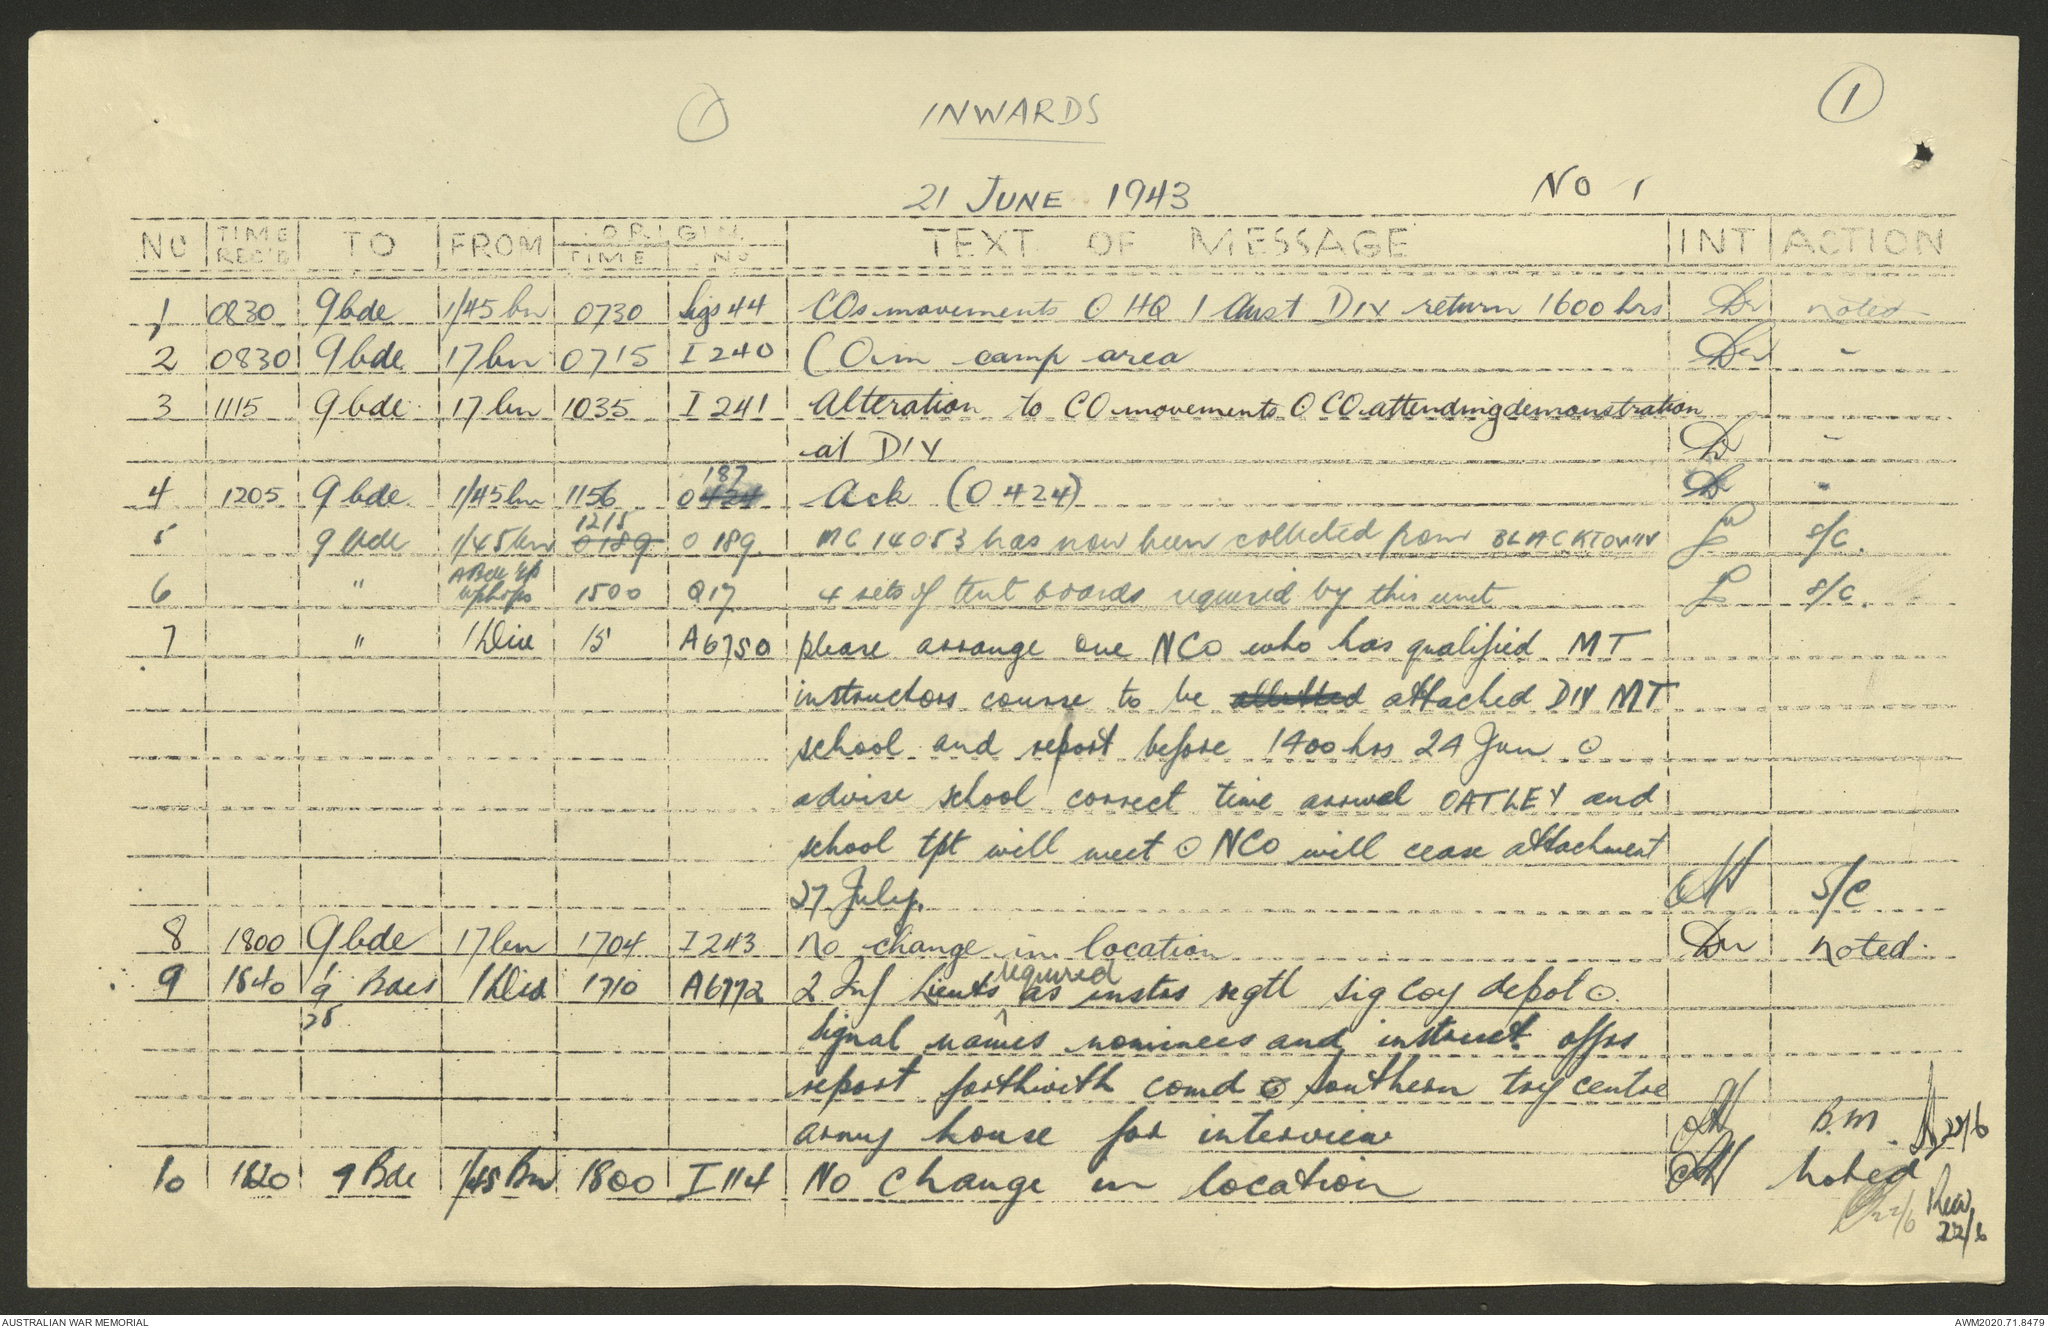 1 INWARDS 1
21 JUNE 1943 NO 1
NO TIME REC'D TO FROM ORIGIN TIME NO TEXT OF MESSAGE INT ACTION
1 0830 9 bde 1/45 bn 0730 44 COs movements O HQ 1 Aust DIV return 1600 hrs noted
2 0830 9 bde 17 bn 0715 I 240 CO in camp area "
3 1115 9 bde 17 bn 1035 I 241 Alteration to CO movements O CO attending demonstration
at DIV "
187
4 1205 9 bde 1/45 bn 1156 O 424 Ack (O 424) "
1215
5 9 bde 1/45 bn 0189 O 189 MC 14053 has now been collected from BLACKTOWN S/C.
6 " 1500 Q17 4 sets of tent boards required by this unit S/C.
7 " 1 Div 15 A6750 please arrange one NCO who has qualified MT
instructors course to be allotted attached DIV MT
school and report before 1400 hrs 24 Jun O
advise school correct time arrival OATLEY and
school tpt will meet O NCO will cease attachment
27 July. S/C
8 1800 9 bde 17 bn 1704 I 243 No change in location Dn noted.
required
9 1840 1/9 Bdes 1 Div 1710 A6772 2 Inf Lieuts as instrs regtl sig coy depot O
28
signal names nominees and instruct offrs
report forthwith comd O southern trg centre
army house for interview B.M. 22/6
10 1820 9 Bde 1/45 Bn 1800 I 114 No change in location Noted
22/6 22/6
AUSTRALIAN WAR MEMORIAL AWM2020.71.8479